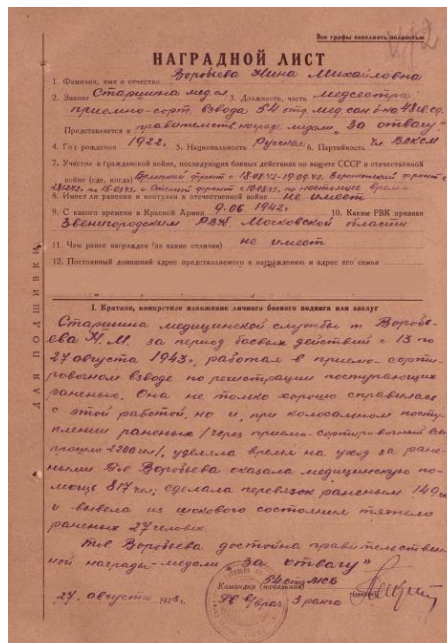 Все графы заполнять полностью
НАГРАДНОЙ ЛИСТ
1. Фамилия, имя и отчество Воробьева Нина Михайловна
2. Звание Старшина мед сл. 3. Должность, часть медсестра
приемно-сорт взвода 54 отд. мед сан б-на
Представляется к правительств. награде медаль "За отвагу"
4. Год рождения 1922г. 5. Национальность Русская 6. Партийность Чл. ВЛКСМ
7. Участие в гражданской войне, последующих боевых действиях по защите СССР и отечественной
войне (где, когда) Брянский фронт с 18.08.42-19.09.42, Воронежский фронт с
по Степной фронт с по настоящее время
8. Имеет ли ранения и контузии в отечественной войне не имеет
9. С какого времени в Красной Армии 9.06 1942г. 10. Каким РВК призван
Звенигородским РВК Московской области
11. Чем ранее награжден (за какие отличия) не имеет
12. Постоянный домашний адрес представляемого к награждению и адрес его семьи
ДЛЯ ПОДШИВКИ
I. Краткое, конкретное изложение личного боевого подвига или заслуг
Старшина медицинской службы т Воробь-
ева Н.М. за период боевых действий с 13 по
27 августа 1943г. работая в приемо-сорти-
ровочном взводе по регистрации поступающих
раненых. Она не только хорошо справилась
с этой работой, но и, при колосальном посту-
плении раненых /через приемо-сортировочный взв
прошло 2200 чел/, уделяла время на уход за ране-
ными Тов Воробьева оказала медицинскую по-
мощь 817 чел, сделала перевязок раненым 149
и вывела из шокового состояния тяжело
раненых 27 человек.
Тов Воробьева достойна правительствен-
ной награды-медали "За отвагу"
Командир (начальник) 54 отд МСБ
27 августа 1943г. в/врач 3 ранга